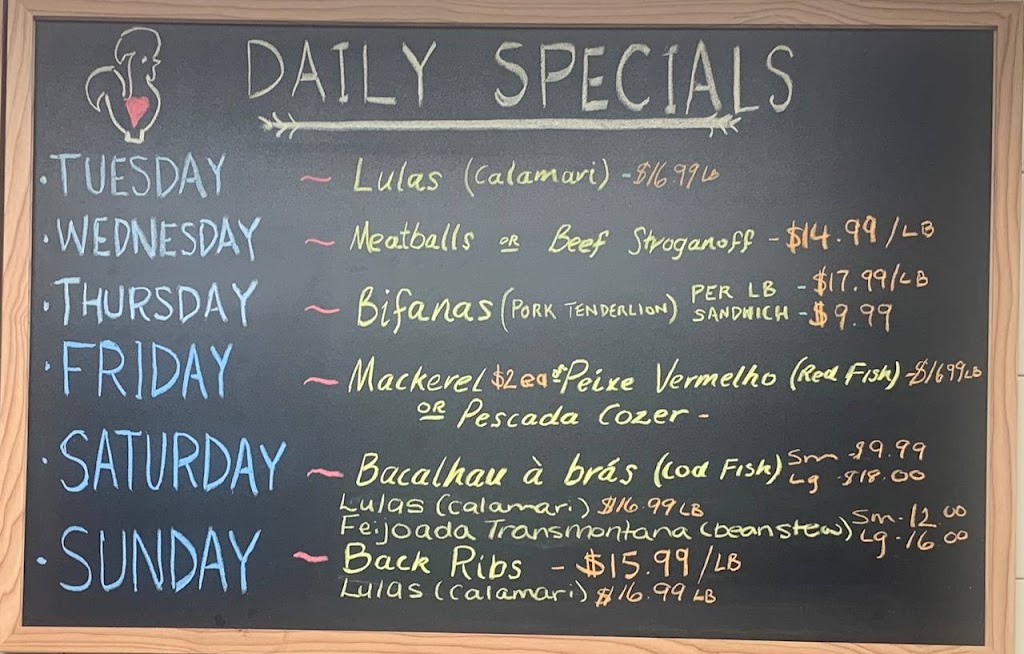 DAILY SPECIALS
• TUESDAY ~ Lulas (Calamari) - $16.99 LB
• WEDNESDAY ~ Meatballs OR Beef Stroganoff - $14.99/LB
• THURSDAY ~ Bifanas (PORK TENDERLION) PER LB - $17.99/LB
SANDWICH - $9.99
• FRIDAY ~ Mackerel $2 ea or Peixe Vermelho (Red Fish) - $16.99 LB
OR Pescada Cozer -
• SATURDAY ~ Bacalhau à brás (Cod Fish) Sm - $9.99
Lg - $18.00
Lulas (calamari) $16.99 LB
Feijoada Transmontana (bean stew) Sm - 12.00
Lg - 16.00
• SUNDAY ~ Back Ribs - $15.99/LB
Lulas (Calamari) $16.99 LB